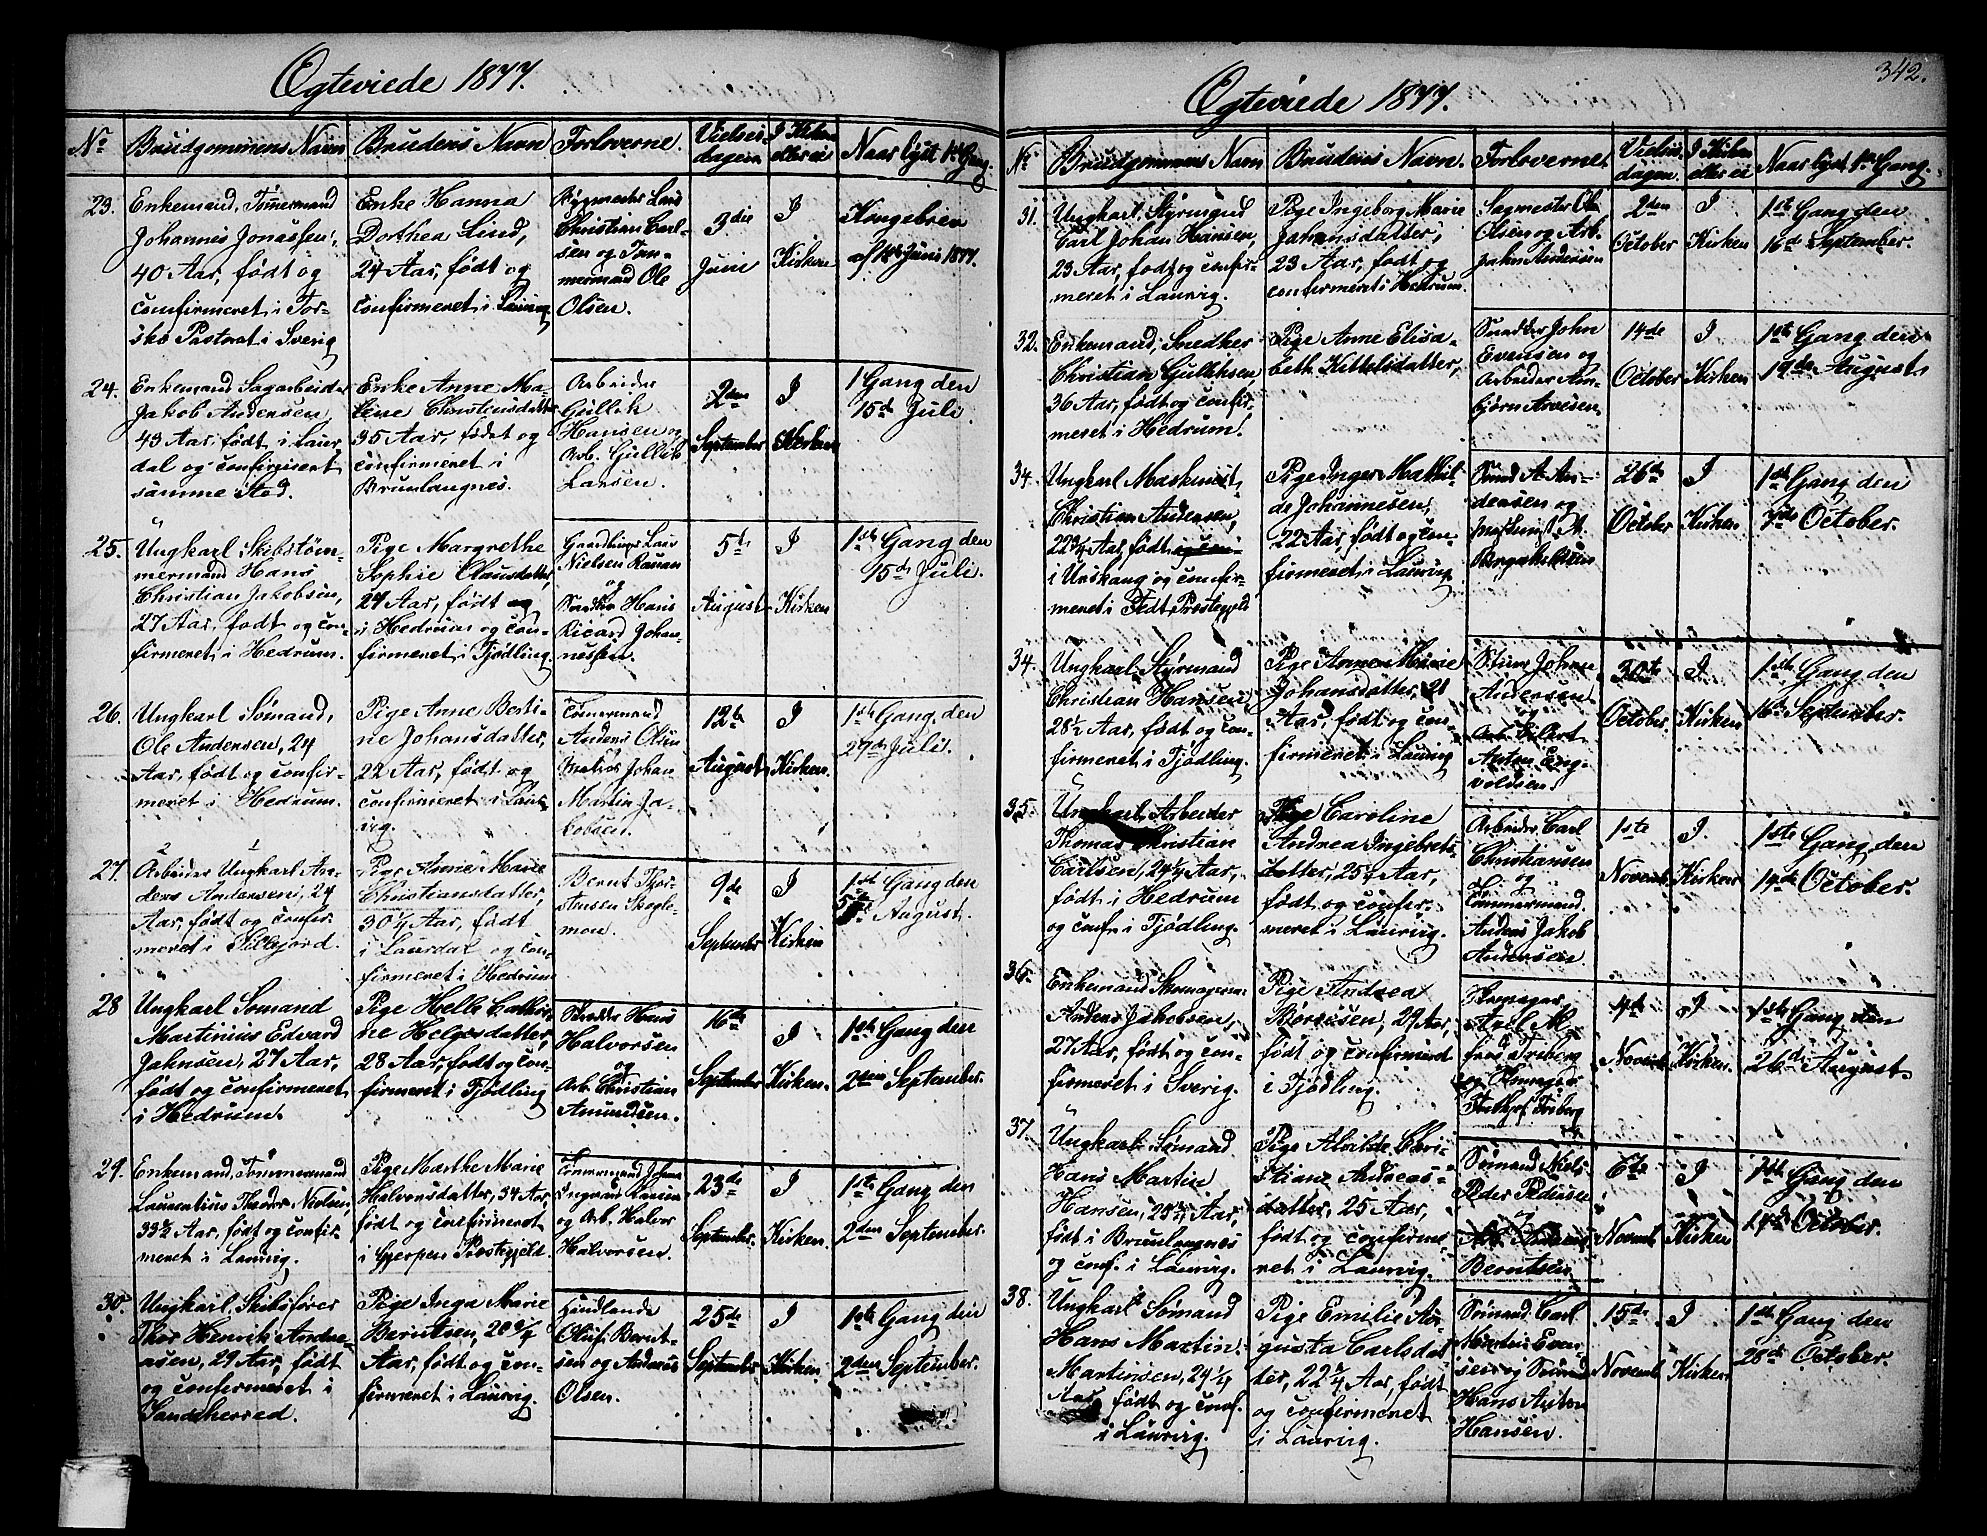 Ægteviede 1877.
No
Brudgommens Navn
Brudens Navn
Forloverne.
Vielses-
dagen
I Kirken
eller ei
Naar lyst 1ste Gang.
23.
Enkemand, Tømmermand
Johannes Jonassen,
40 Aar, født og
confirmeret i Tor-
sko Pastorat i Sverig
Enke Hanna
Dothea Lind,
24 Aar, født og
confirmeret i Laurvig
Bygmester Lars
Christian Carl-
sen og Tøm-
mermand Ole
Olsen.
3die
Juni
I
Kirken
Kongebrev
af 1ste Juni 1877.
24.
Enkemand Sagarbeider
Jakob Andersen
43 Aar, født i Laur
dal og confirmeret
samme Sted.
Enke Anne Ma-
line Christensdatter
35 Aar, født og
confirmeret i
Brunlaugnes.
Arbeider
Gullik
Hansen
Arb. Gullik
Larsen.
2den
September
I
Kirken
1 Gang den
15de Juli.
25.
Ungkarl Skibstøm-
mermand Hans
Christian Jakobsen,
27 Aar, født og con-
firmeret i Hedrum.
Pige Margrethe
Sophie Olausdatter,
24 Aar, født og
i Hedrum og con-
firmeret i Tjødling.
Gaardbruger Lars
Nielsen
og
Snedker Hans
Ricard Johan-
nessen.
5te
August
I
Kirken
1ste Gang den
15de Juli.
26.
Ungkarl Sømand,
Ole Andersen, 24
Aar, født og confir-
meret i Hedrum.
Pige Anne Berti-
ne Johansdatter,
22 Aar, født og
confirmeret i Laur-
vig.
Tømmermand
Anders Olsen
og
Matros Johan
Martin Ja-
kobsen.
12te
August
I
Kirken.
1ste Gang den
29de Juli.
27.
Arbeider Ungkarl An-
ders Andersen, 24
Aar, født og confir-
meret i Sillejord.
Pige Anne Marie
Christiansdatter,
30 1/4 Aar, født
i Laurdal og con-
firmeret i Hedrum
Bernt Thor-
stensen Skogle-
mon.
9de
September
I
Kirken
1ste Gang den
5te August.
28
Ungkarl Sømand
Martinius Edvard
Jahnsen, 27 Aar,
født og confirmeret
i Hedrum.
Pige Helle Cathri-
ne Helgesdatter,
28 Aar, født og con-
firmeret i Tjødling
Snedker Hans
Halvorsen
og
Arb. Christian
Amundsen.
16de
September
I
Kirken.
1ste Gang den
2den September.
29.
Enkemand, Tømmermand
Laurentius Theodor Nielsen,
33 1/2 Aar, født og confir-
meret i Laurvig.
Pige Marthe Marie
Halvorsdatter, 34 Aar
født og confirmeret
i Gjerpen Præstegjeld.
Tømmermand Johan
Ingvard Larsen
og Arb. Halvor
Halvorsen.
23de
September.
I
Kirken.
1ste Gang den
2den September.
30.
Ungkarl, Skibsfører
Thor Henrik Andre-
asen, 29 Aar, født
og confirmeret i
Sandeherred.
Pige Inga Marie
Berntsen, 20 3/4
Aar, født og con-
firmeret i Laurvig.
Handlende
Oluf Bernt-
sen og Anders
Olsen.
25de
September
I
Kirken.
1ste Gang den
2den September.
342.
Ægteviede 1877.
No
Brudgommens Navn
Brudens Navn.
Forloverne
Vielses-
dagen.
I Kirken
eller ei
Naar lyst 1ste Gang.
31.
Ungkarl, Styrmand
Carl Johan Hansen,
23 Aar, født og confir-
meret i Laurvig.
Pige Ingeborg Marie
Johansdatter,
23 Aar, født og
confirmeret i Hedrum.
Sagmester Ole
Olsen og Arb.
Jahn Andersen
2den
October
I
Kirken
1ste Gang den
16de September.
32.
Enkemand, Snedker
Christian Gulliksen,
36 Aar, født og confir-
meret i Hedrum.
Pige Anne Elisa-
beth Kittelsdatter,
Snedker John
Evensen og
Arbeider Arn-
bjørn Arvesen
14de
October
I
Kirken
1ste Gang den
19de August.
34.
Ungkarl Maskinist,
Christian Andersen,
22 3/4 Aar, født og con-
i Urskoug og confir-
meret i Fedt Prestegjeld
Pige Inger Mathil-
de Johannesen,
22 Aar, født og con-
firmeret i Laurvig.
Smed A. An-
dersen og
Maskinist A.
26de
October
I
Kirken
1ste Gang den
7de October.
34.
Ungkarl Styrmand
Christian Hansen,
28 1/2 Aar, født og con-
firmeret i Tjødling.
Pige Anne Marie
Johansdatter, 21
Aar, født og con-
firmeret i Laurvig
Styrm. Johan
Andersen
og
Arb. Eilert
Anton Eng-
voldsen.
30te
October.
I
Kirken
1ste Gang den
16de September.
35.
Ungkarl, Arbeider
Thomas Christian
Carlsen, 24 1/4 Aar,
født i Hedrum
og conf. i Tjødling.
Pige Caroline
Andrea Ingebrets-
datter, 25 Aar,
født og confir-
meret i Laurvig.
Arbeider Carl
Christiansen
og
Tømmermand
Anders Jakob
Andersen.
1ste
Novemb.
I
Kirken
1ste Gang den
14de October.
36.
Enkemand Skomagerm.
Anders Jakobsen,
27 Aar, født og con-
firmeret i Sverig.
Pige Andrea
Børresen, 29 Aar,
født og confirmeret
i Tjødling.
Skomager
Axel M.
Friberg
og Skomager
Fridthjof Friberg
4de
Novemb.
I
Kirken.
1ste Gang den
26de August.
37.
Ungkarl Sømand
Hans Martin
Hansen, 28 3/4 Aar,
født i Brunlaugnes
og conf. i Laurvig.
Pige Alvilde Chri-
stiane Andreas-
datter, 25 Aar,
født og confirme-
ret i Laurvig.
Sømand Niels
Peder Pedersen
og
Arb. Andreas
Berntsen
6te
Novemb.
I
Kirken
1ste Gang den
14de October.
38.
Ungkarl Sømand
Hans Martin
Martinsen, 24 1/4
Aar, født og conf.
i Laurvig.
Pige Emilie Au-
gusta Carlsdat-
ter, 22 3/4 Aar, født
og confirmeret
i Laurvig.
Sømand Carl
Martin Evan-
sen og Sømand
Hans Anton
Hansen.
15de
Novemb.
I
Kirken
1ste Gang den
28de October.